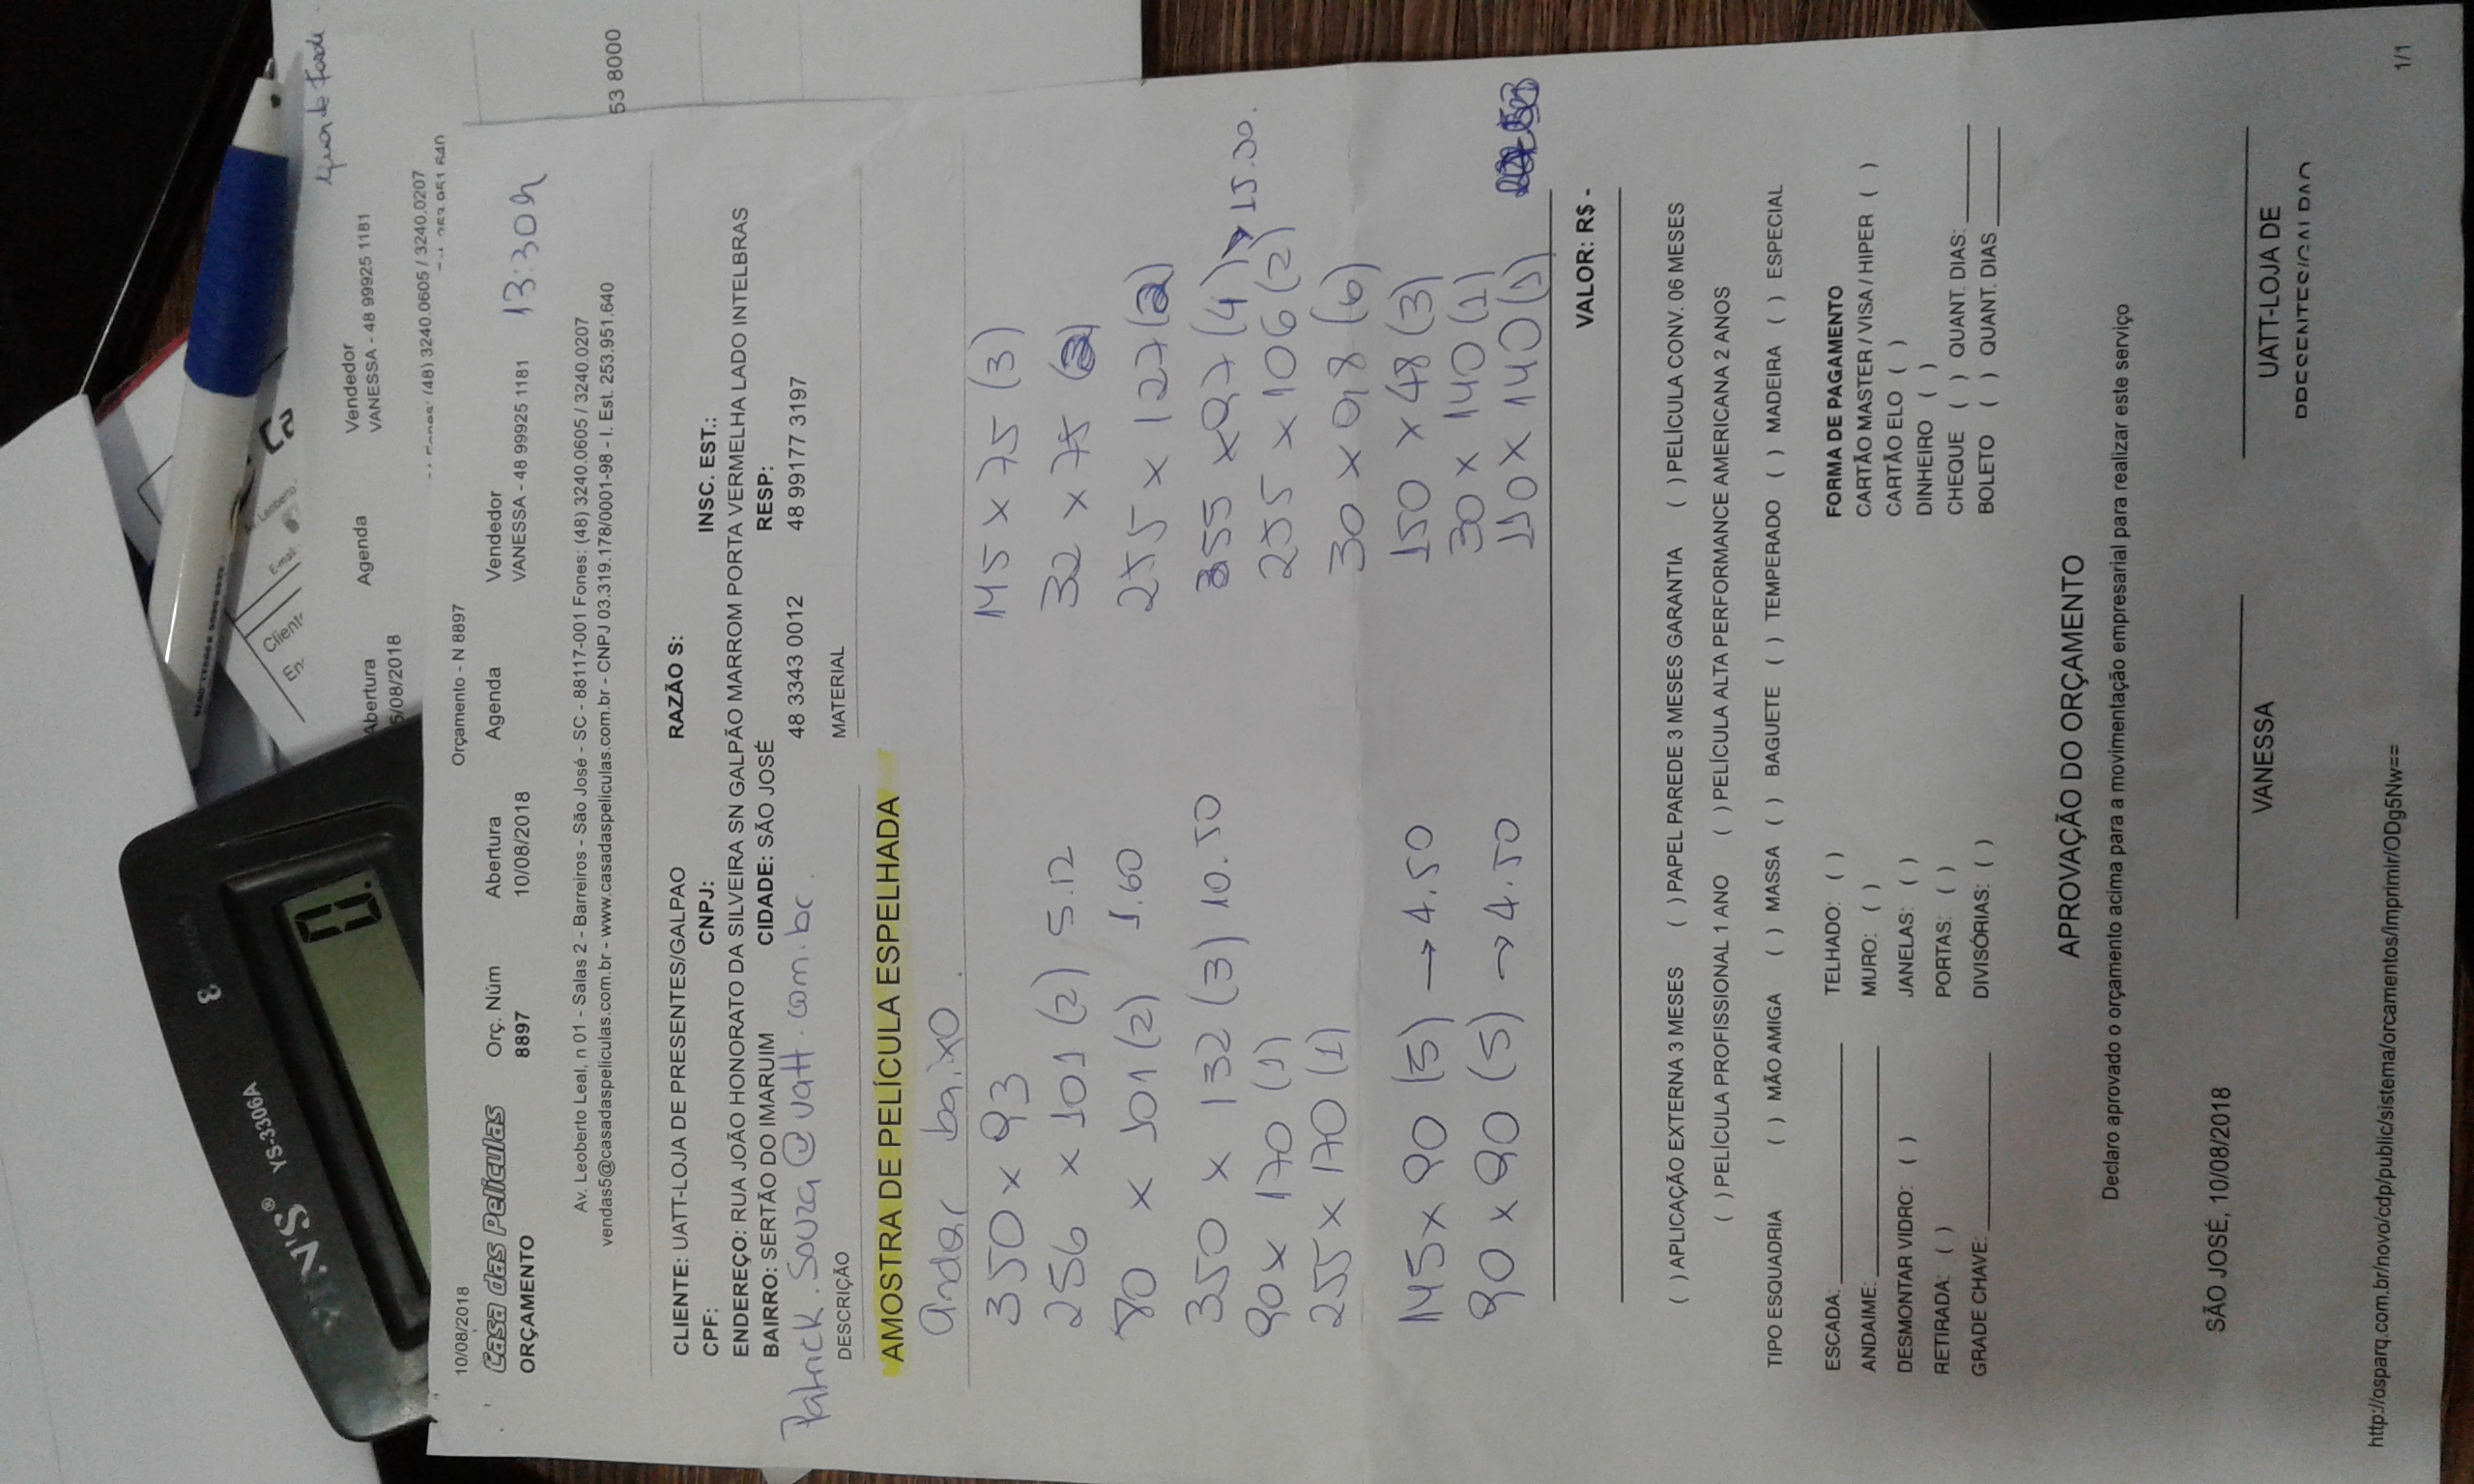 10/08/2018 Orçamento - N 8897
Casa das Películas Orç. Núm Abertura Agenda Vendedor
ORÇAMENTO 8897 10/08/2018 VANESSA - 48 99925 1181 13:30h
Av. Leoberto Leal, n 01 - Salas 2 - Barreiros - São José - SC - 88117-001 Fones: (48) 3240.0605 / 3240.0207
vendas5@casadaspeliculas.com.br - www.casadaspeliculas.com.br - CNPJ 03.319.178/0001-98 - I. Est. 253.951.640
CLIENTE: UATT-LOJA DE PRESENTES/GALPAO RAZÃO S:
CPF: CNPJ: INSC. EST.:
ENDEREÇO: RUA JOÃO HONORATO DA SILVEIRA SN GALPÃO MARROM PORTA VERMELHA LADO INTELBRAS
BAIRRO: SERTÃO DO IMARUIM CIDADE: SÃO JOSÉ RESP:
Patrick.Souza@uatt.com.br. 48 3343 0012 48 99177 3197
DESCRIÇÃO MATERIAL
AMOSTRA DE PELÍCULA ESPELHADA
andar baixo.
350 x 93 145 x 75 (3)
256 x 101 (2) 5.12 32 x 75
80 x 101 (2) 1.60 255 x 127
350 x 132 (3) 10.50 355 x 97 (4) → 15.30.
90 x 170 (1) 255 x 106 (2)
255 x 170 (1) 30 x 98 (6)
145 x 90 (5) → 4.50 150 x 48 (3)
30 x 140 (1)
90 x 90 (5) → 4.50 110 x 140 (1)
VALOR: R$ -
( ) APLICAÇÃO EXTERNA 3 MESES ( ) PAPEL PAREDE 3 MESES GARANTIA ( ) PELÍCULA CONV. 06 MESES
( ) PELÍCULA PROFISSIONAL 1 ANO ( ) PELÍCULA ALTA PERFORMANCE AMERICANA 2 ANOS
TIPO ESQUADRIA ( ) MÃO AMIGA ( ) MASSA ( ) BAGUETE ( ) TEMPERADO ( ) MADEIRA ( ) ESPECIAL
ESCADA: TELHADO: ( ) FORMA DE PAGAMENTO
ANDAIME: MURO: ( ) CARTÃO MASTER / VISA / HIPER ( )
DESMONTAR VIDRO: ( ) JANELAS: ( ) CARTÃO ELO ( )
RETIRADA: ( ) PORTAS: ( ) DINHEIRO ( )
GRADE CHAVE: DIVISÓRIAS: ( ) CHEQUE ( ) QUANT. DIAS:
BOLETO ( ) QUANT. DIAS
APROVAÇÃO DO ORÇAMENTO
Declaro aprovado o orçamento acima para a movimentação empresarial para realizar este serviço
SÃO JOSÉ, 10/08/2018
VANESSA UATT-LOJA DE
http://osparq.com.br/novo/cdp/public/sistema/orcamentos/imprimir/ODg5Nw== 1/1
YS-3306A
0.
Abertura Agenda Vendedor
VANESSA - 48 99925 1181
(48) 3240.0605 / 3240.0207
53 8000